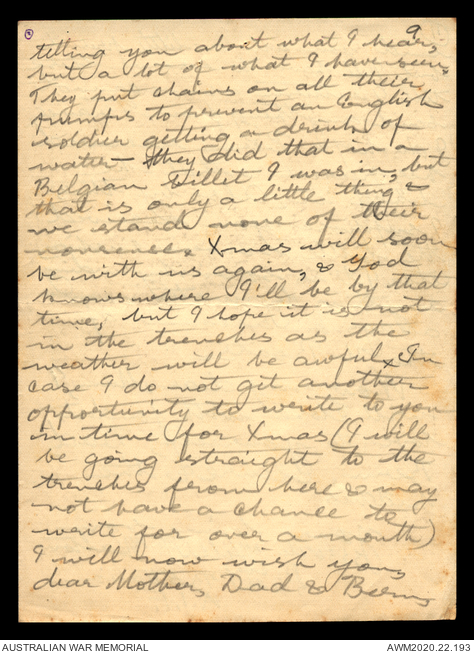 9
telling you about what I hear,
but a lot of what I have seen.
They put chains on all their
pumps to prevent an English
soldier getting a drink of
water - they did that in a
Belgian billet I was in, but
that is only a little thing &
we stand none of their
nonsense. Xmas will soon
be with us again, & God
knows where I'll be by that
time, but I hope it is not
in the trenches as the
weather will be awful. In
case I do not get another
opportunity to write to you
in time for Xmas (I will
be going straight to the
trenches from here & may
not have a chance to
write for over a month)
I will now wish you,
dear Mother, Dad & Bern,
AUSTRALIAN WAR MEMORIAL
AWM2020.22.193